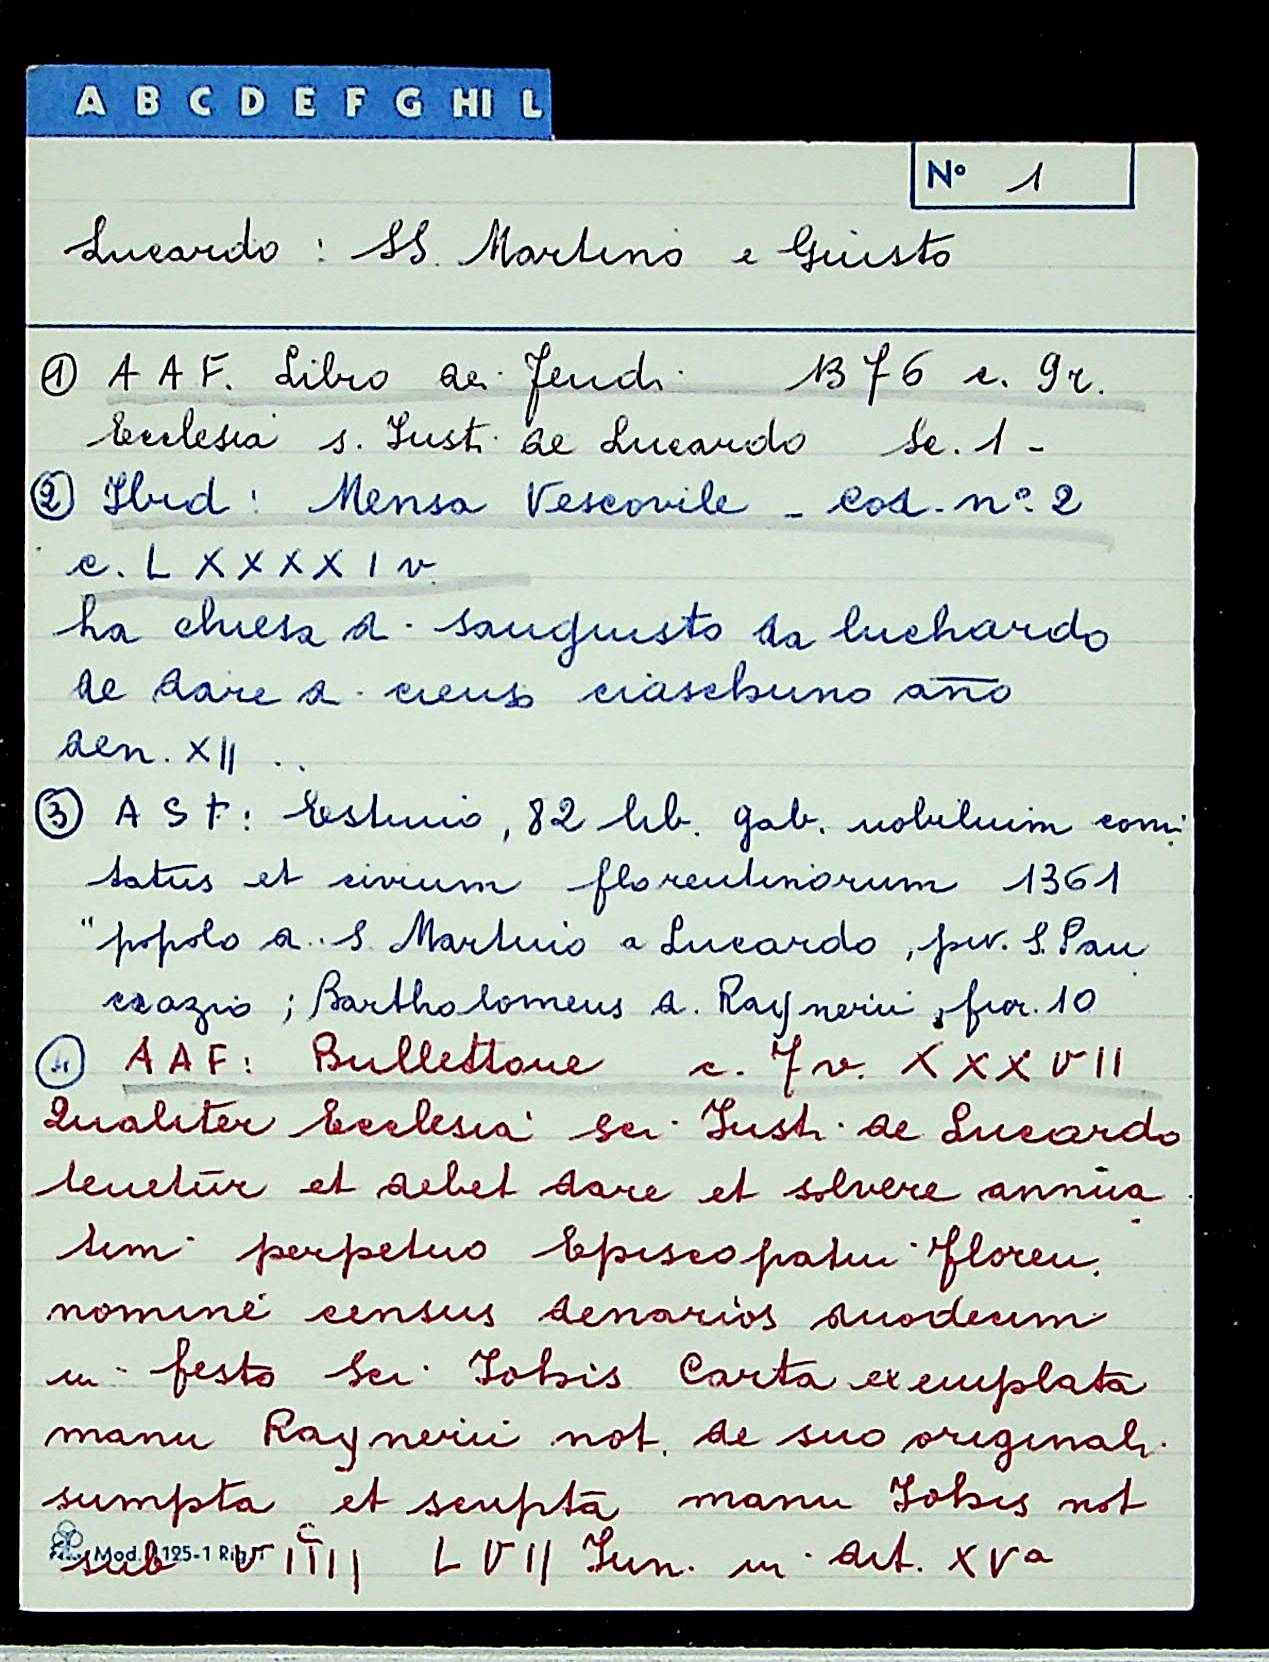 A B C D E F G HI L
N° 1
Lucardo : SS. Martino e Giusto
① A A F. Libro dei feudi 1376 c. 9r.
Ecclesia s. Justi de Lucardo Sc. 1 -
② Ibid : Mensa Vescovile - cod. n° 2
c. L X X X X I v.
ha chiesa di sangiusto da luchardo
de dare di cienso ciaschuno año
den. XII ..
③ A S F : Estimo, 82 lib. gab. nobilium comi
tatus et civium florentinorum 1361
"popolo di S. Martino a Lucardo, piv. S. Pan
crazio ; Bartholomeus d. Raynerii, fior. 10
④ A A F : Bullettone c. 7 v. X X X V I I
Qualiter Ecclesia sci Justi de Lucardo
tenetūr et debet dare et solvere annua
tim perpetuo Episcopatui floren.
nomine census denarios duodecim
in festo Sci Johis Carta exemplata
manu Raynerii not. de suo originali
sumpta et scriptā manu Johis not
Mod. 125-1
sub VIIII LVII Jun. in dit. XVª